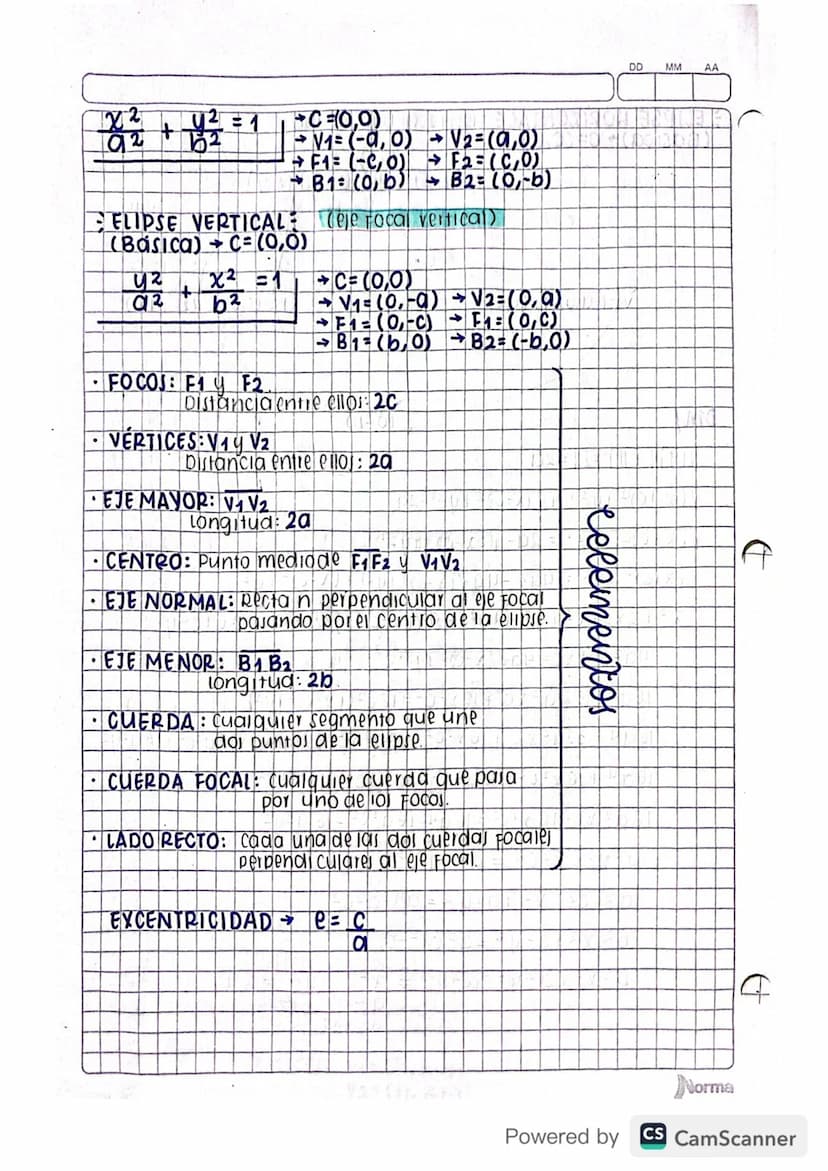 DD MM AA
x²/a² + y²/b² = 1
→ C=(0,0)
→ V1=(-a,0) → V2=(a,0)
→ F1=(-c,0) → F2=(c,0)
→ B1=(0,b) → B2=(0,-b)
ELIPSE VERTICAL: (eje focal vertical)
(Básica) → C=(0,0)
y²/a² + x²/b² = 1
→ C=(0,0)
→ V1=(0,-a) → V2=(0,a)
→ F1=(0,-c) → F1=(0,c)
→ B1=(b,0) → B2=(-b,0)
· FOCOS: F1 y F2
Distancia entre ellos: 2c
· VÉRTICES: V1 y V2
Distancia entre ellos: 2a
· EJE MAYOR: V1 V2
longitud: 2a
· CENTRO: Punto medio de F1F2 y V1V2
· EJE NORMAL: Recta n perpendicular al eje focal
pasando por el centro de la elipse.
· EJE MENOR: B1 B2
longitud: 2b
· CUERDA: cualquier segmento que une
dos puntos de la elipse.
· CUERDA FOCAL: cualquier cuerda que pasa
por uno de los focos.
· LADO RECTO: cada una de las dos cuerdas focales
perpendiculares al eje focal.
elementos
EXCENTRICIDAD → e = c/a
Norma
Powered by CS CamScanner